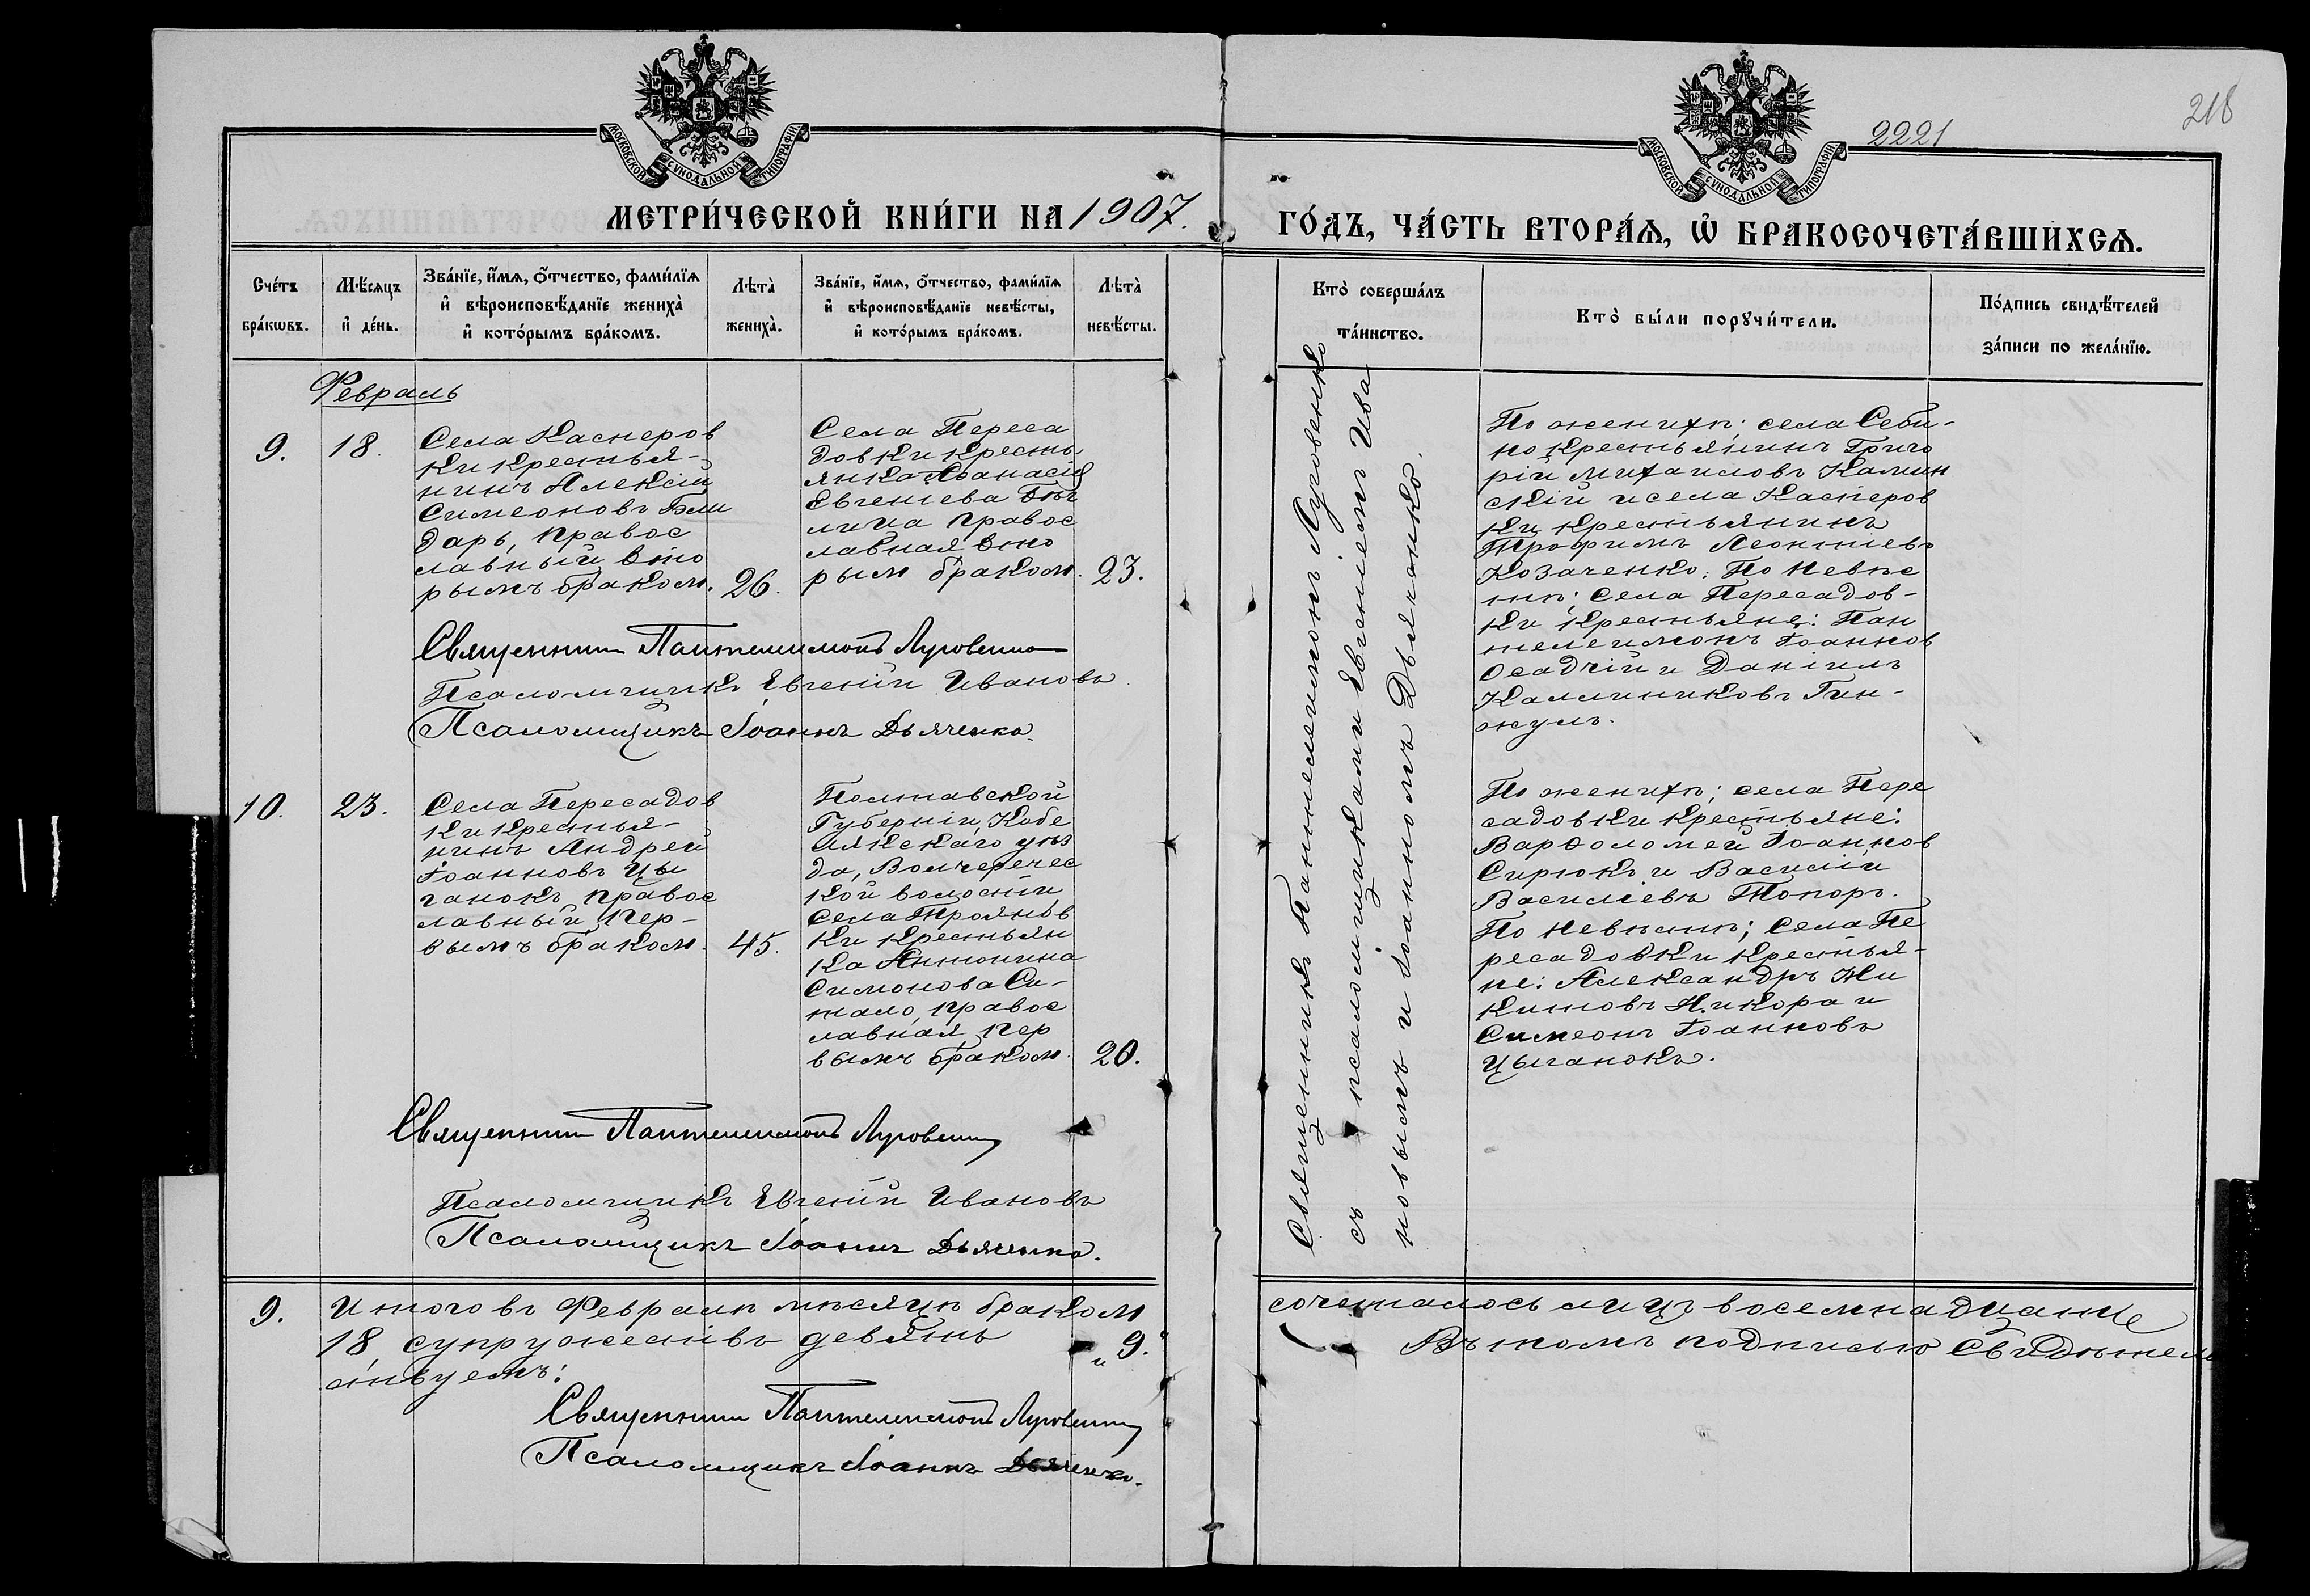 2221
218
МОСКОВСКОЙ СУНОДАЛЬНОЙ ТИПОГРАФІИ
МОСКОВСКОЙ СУНОДАЛЬНОЙ ТИПОГРАФІИ
МЕТРИ́ЧЕСКОЙ КНИ́ГИ НА 1907.
ГО́ДЪ, ЧА́СТЬ ВТОРА́Ѧ, Ѡ҆ БРАКОСОЧЕТА́ВШИХСѦ.
Сче́тъ
бра́кѡвъ.
Мѣ́сяцъ
и҆ де́нь.
Зва́нїе, и҆́мѧ, о҆́тчество, фами́лїѧ
и҆ вѣроисповѣ́данїе женихà
и҆ кото́рымъ бра́комъ.
Лѣтà
женихà.
Зва́нїе, и҆́мѧ, о҆́тчество, фами́лїѧ
и҆ вѣроисповѣ́данїе невѣ́сты,
и҆ кото́рымъ бра́комъ.
Лѣтà
невѣ́сты.
Кто̀ соверша́лъ
та́инство.
Кто̀ бы́ли порꙋчи́тели.
По́дпись свидѣ́телей
за́писи по жела́нїю.
Февраль
9.
18.
Села Касперов
ки крестья-
нинъ Алексій
Симеоновъ Бли
даръ, правос
лавный вто
рымъ браком.
26.
Села Переса
довки кресть
янка Аѳанасія
Евгеніева
лица правос
лавная вто
рым браком.
23.
Священникъ Пантелеимонъ Луговенко
съ псаломщиками Евгеніемъ Ива
новымъ и Іоанномъ Дьяченко.
По женихѣ; села Себи-
но крестьянинъ Григо
рій Михаиловъ Камин
скій и села Касперов
ки крестьянинъ
Трофимъ Леонтіевъ
Козаченко; По невѣс
тѣ; села Пересадов-
ки крестьяне: Пан
телеимонъ Іоаннов
Осадчій и Даніилъ
Каллиниковъ Гин-
жулъ.
Священникъ Пантелеимонъ Луговенко
Псаломщикъ Евгеній Ивановъ
Псаломщикъ Іоаннъ Дьяченко.
10.
23.
Села Пересадов
ки крестья-
нинъ Андрей
Іоанновъ Цы
ганокъ правос
лавный, пер-
вымъ браком.
45.
Полтавской
Губерніи, Кобе
лякскаго уѣз
да, Волчеречес
кой волости
села Троянов
ки крестьян
ка Антонина
Симонова Си-
тало, правос
лавная, пер
вымъ браком.
20.
По женихѣ; села Пере
садовки крестьяне:
Варѳоломей Іоаннов
Сирюкъ и Василій
Василіевъ Топоръ.
По невѣстѣ; села Пе
ресадовки крестья-
не: Александръ Ни
китовъ Никора и
Симеонъ Іоанновъ
Цыганокъ.
Священникъ Пантелеимонъ Луговенко
Псаломщикъ Евгеній Ивановъ
Псаломщикъ Іоаннъ Дьяченко.
9.
Итого въ Февралѣ мѣсяцѣ браком сочеталось лицъ восемнадцать
18 супружествъ девять „9." Въ томъ подписью свидѣтель
ствуемъ:
Священникъ Пантелеимонъ Луговенко
Псаломщикъ Іоаннъ Дьяченко.